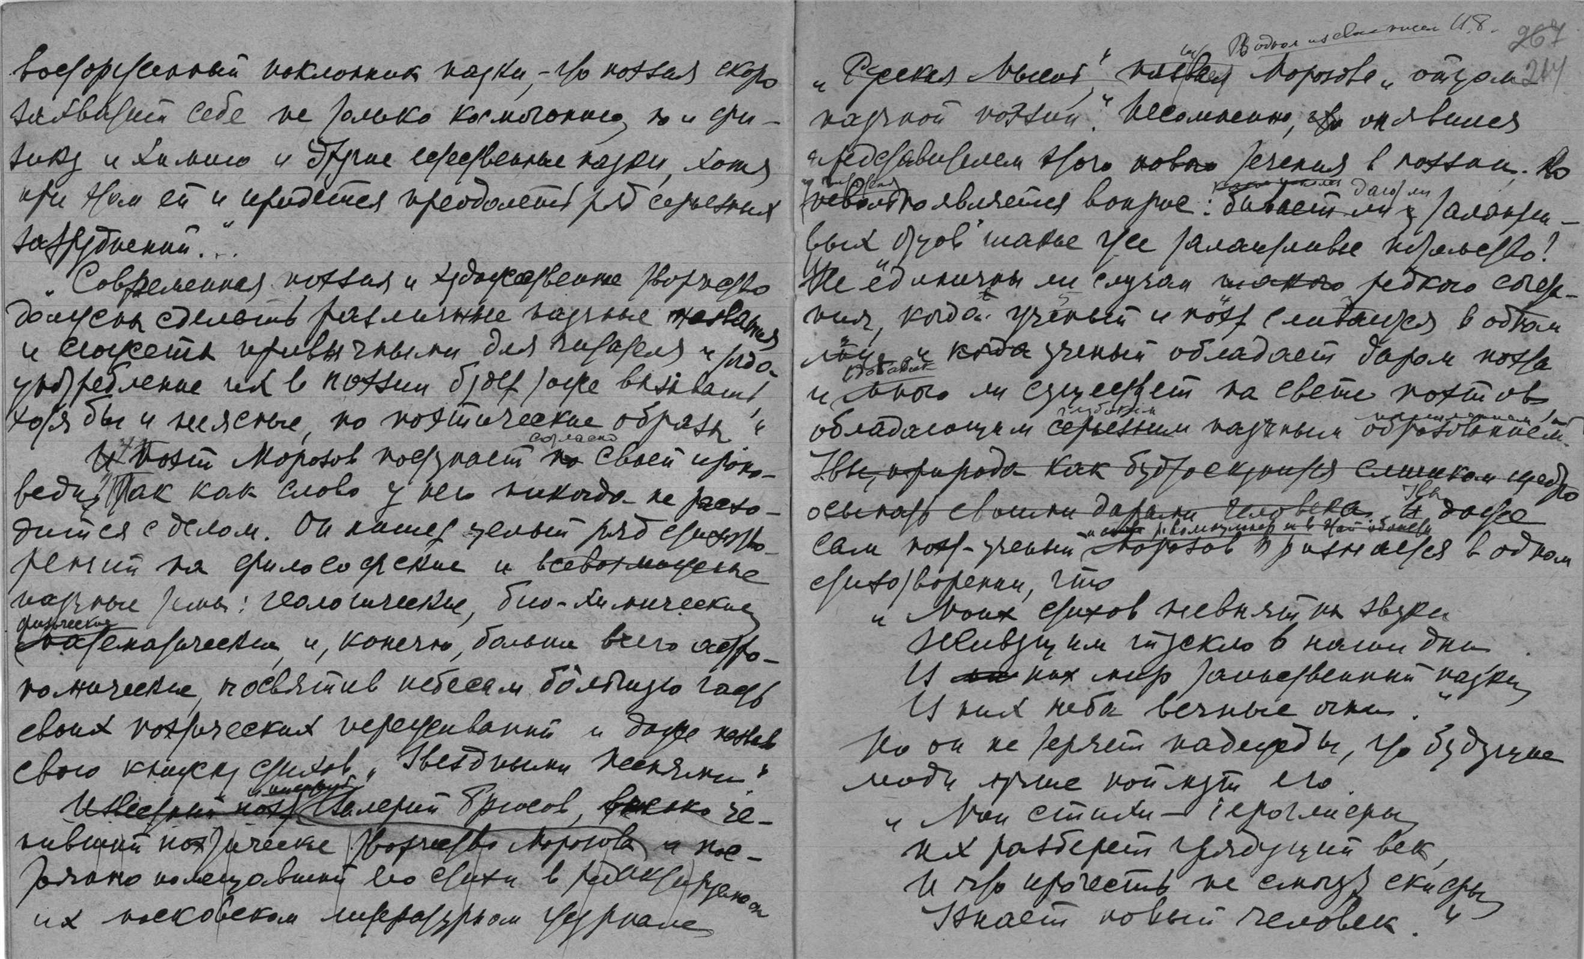 восторженный поклонник науки, – что поэзия скоро
завоюет себе не только космогонию, но и фи-
зику и химию и другие естественные науки, хотя
при этом ей и придется преодолеть ряд серьезных
затруднений."...
"Современная поэзия и художественное творчество
должны сделать различные научные названия
и сюжеты привычными для читателя и что
употребление их в поэзии будет тоже вызывать
хотя бы и неясные, но поэтические образы"
И поэт Морозов поступает согласно своей пропо-
веди, так как слово у него никогда не расхо-
дится с делом. Он пишет целый ряд стихотво-
рений на философские и всевозможные
научные темы: геологические, био-химические,
физические
математические, и, конечно, больше всего астро-
номические, посвятив небесам бо́льшую часть
своих поэтических переживаний и даже назвав
свою книжку стихов "Звездными песнями"
Известный поэт Валерий Брюсов, высоко це-
нивший поэтическое творчество Морозова и по-
стоянно помещавший его стихи в редактируемом
их московском литературном журнале
267
217
В одном из своих писем И.В.
"Русская мысль", назвал Морозова "отцом
научной поэзии". Несомненно, он явился
представителем этого нового течения в поэзии. Но
невольно является вопрос: бывает ли у талантли-
вых "отцов" такое же талантливое потомство?
Не единичны ли случаи такого редкого сочета-
ния, когда ученый и поэт сливаются в одном
лице, и когда ученый обладает даром поэта
и много ли существует на свете поэтов
обладающих серьезным научным образованием.
Увы, природа как будто скупится слишком щедро
осыпать своими дарами человека. И даже
сам поэт-ученый Морозов признается в одном
стихотворении, что
"Моих стихов невнятны звуки
Живущим тускло в наши дни
И них мир таинственный науки,
И них неба вечные огни."
Но он не теряет надежды, что будущие
люди лучше поймут его.
"Мои стихи – иероглифы,
их разберет грядущий век,
И что прочесть не смогут скифы
Узнает новый человек."